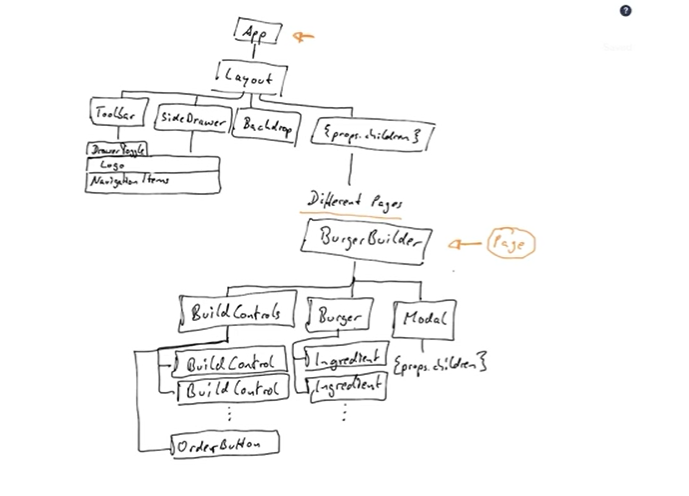 ?
App
Layout
Toolbar
SideDrawer
Backdrop
{props.children}
DrawerToggle
Logo
Navigation Items
Different Pages
BurgerBuilder
Page
BuildControls
Burger
Modal
BuildControl
Ingredient
{props.children}
BuildControl
Ingredient
OrderButton